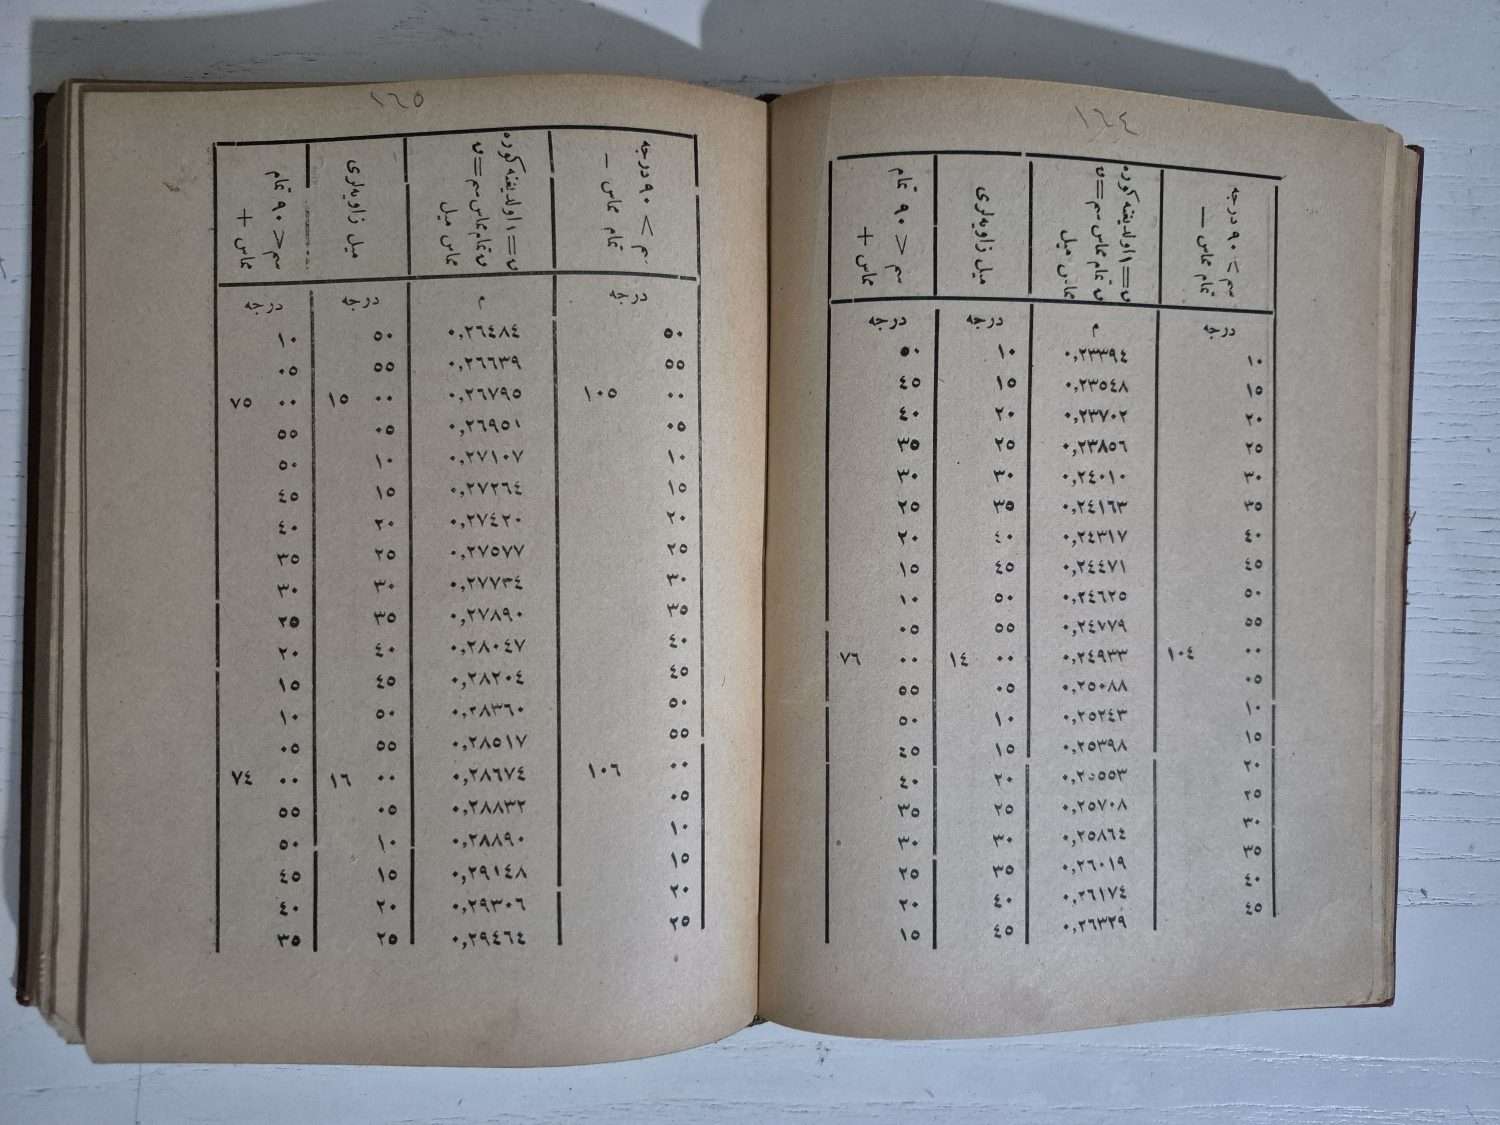 سم > ٩٠ درجه
تمام مماس −
ں = ١ اولديغنه كوره
ں تمام مماس سم = ں
مماس ميل
ميل زاويه لرى
سم < ٩٠ تمام
مماس +
درجه م درجه درجه
١٠ ٠,٢٣٣٩٤ ١٠ ٥٠
١٥ ٠,٢٣٥٤٨ ١٥ ٤٥
٢٠ ٠,٢٣٧٠٢ ٢٠ ٤٠
٢٥ ٠,٢٣٨٥٦ ٢٥ ٣٥
٣٠ ٠,٢٤٠١٠ ٣٠ ٣٠
٣٥ ٠,٢٤١٦٣ ٣٥ ٢٥
٤٠ ٠,٢٤٣١٧ ٤٠ ٢٠
٤٥ ٠,٢٤٤٧١ ٤٥ ١٥
٥٠ ٠,٢٤٦٢٥ ٥٠ ١٠
٥٥ ٠,٢٤٧٧٩ ٥٥ ٠٥
٠٠ ١٠٤ ٠,٢٤٩٣٣ ٠٠ ١٤ ٠٠ ٧٦
٠٥ ٠,٢٥٠٨٨ ٠٥ ٥٥
١٠ ٠,٢٥٢٤٣ ١٠ ٥٠
١٥ ٠,٢٥٣٩٨ ١٥ ٤٥
٢٠ ٠,٢٥٥٥٣ ٢٠ ٤٠
٢٥ ٠,٢٥٧٠٨ ٢٥ ٣٥
٣٠ ٠,٢٥٨٦٤ ٣٠ ٣٠
٣٥ ٠,٢٦٠١٩ ٣٥ ٢٥
٤٠ ٠,٢٦١٧٤ ٤٠ ٢٠
٤٥ ٠,٢٦٣٢٩ ٤٥ ١٥
سم > ٩٠ درجه
تمام مماس −
ں = ١ اولديغنه كوره
ں تمام مماس سم = ں
مماس ميل
ميل زاويه لرى
سم < ٩٠ تمام
مماس +
درجه م درجه درجه
٥٠ ٠,٢٦٤٨٤ ٥٠ ١٠
٥٥ ٠,٢٦٦٣٩ ٥٥ ٠٥
٠٠ ١٠٥ ٠,٢٦٧٩٥ ٠٠ ١٥ ٠٠ ٧٥
٠٥ ٠,٢٦٩٥١ ٠٥ ٥٥
١٠ ٠,٢٧١٠٧ ١٠ ٥٠
١٥ ٠,٢٧٢٦٤ ١٥ ٤٥
٢٠ ٠,٢٧٤٢٠ ٢٠ ٤٠
٢٥ ٠,٢٧٥٧٧ ٢٥ ٣٥
٣٠ ٠,٢٧٧٣٤ ٣٠ ٣٠
٣٥ ٠,٢٧٨٩٠ ٣٥ ٢٥
٤٠ ٠,٢٨٠٤٧ ٤٠ ٢٠
٤٥ ٠,٢٨٢٠٤ ٤٥ ١٥
٥٠ ٠,٢٨٣٦٠ ٥٠ ١٠
٥٥ ٠,٢٨٥١٧ ٥٥ ٠٥
٠٠ ١٠٦ ٠,٢٨٦٧٤ ٠٠ ١٦ ٠٠ ٧٤
٠٥ ٠,٢٨٨٣٢ ٠٥ ٥٥
١٠ ٠,٢٨٨٩٠ ١٠ ٥٠
١٥ ٠,٢٩١٤٨ ١٥ ٤٥
٢٠ ٠,٢٩٣٠٦ ٢٠ ٤٠
٢٥ ٠,٢٩٤٦٤ ٢٥ ٣٥